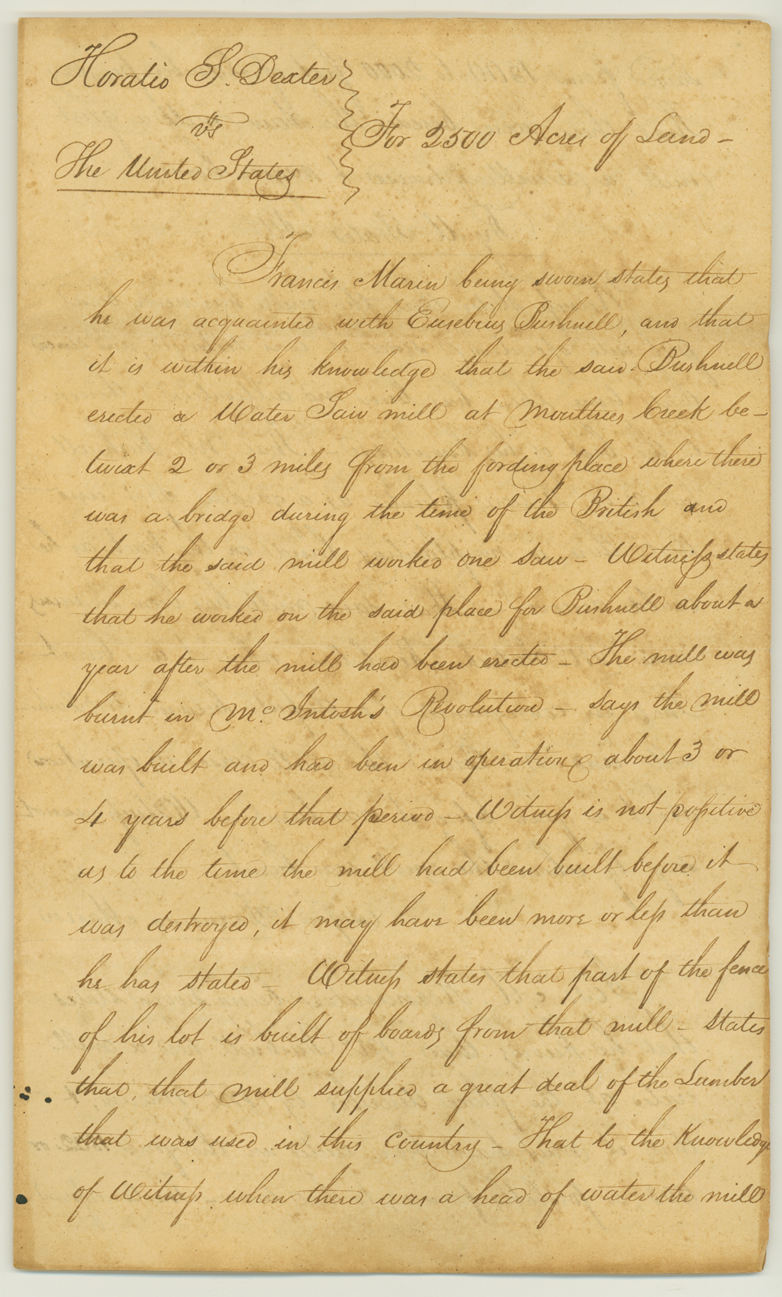 Horatio S. Dexter
vs
The United States
For 2500 Acres of Land –
Francis Marin being sworn states that
he was acquainted with Eusebius Bushnell, and that
it is within his knowledge that the said Bushnell
erected a Water Saw mill at Moultries Creek be-
twixt 2 or 3 miles from the fording place where there
was a bridge during the time of the British and
that the said mill worked one saw – Witness states
that he worked on the said place for Bushnell about a
year after the mill had been erected – The mill was
burnt in McIntosh's Revolution – says the mill
was built and had been in operation about 3 or
4 years before that period – Witness is not positive
as to the time the mill had been built before it
was destroyed, it may have been more or less than
he has stated – Witness states that part of the fence
of his lot is built of boards from that mill – States
that, that mill supplied a great deal of the Lumber
that was used in this Country – That to the Knowledge
of Witness when there was a head of water the mill